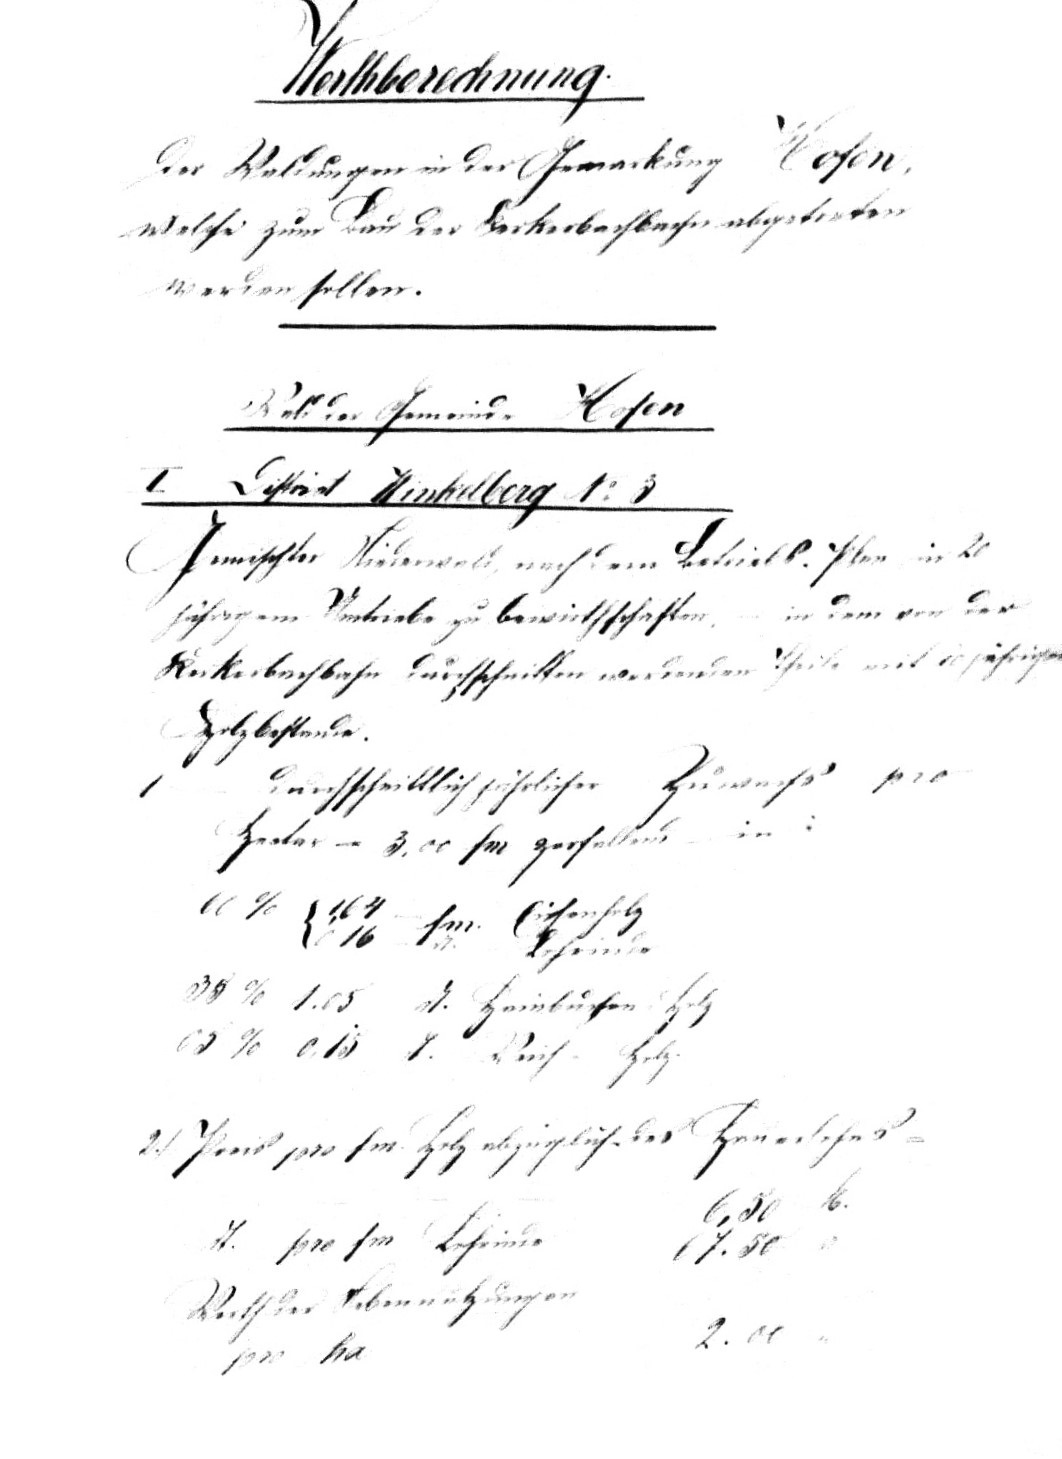 Werthberechnung.
der Waldungen in der Gemarkung Hofen,
welche zum Bau der Kerkerbachbahn abgetreten
werden sollen.
Wald der Gemeinde Hofen
I District Winkelberg No 3
Gemischter Niederwald, nach dem Betriebs-Plan in 20
jährigem Umtriebe zu bewirthschaften, – in dem von der
Kerkerbachbahn durchschnitten werdenden Theile mit jährigem
Holzbestande.
1 durchschnittlich jährlicher Zuwachs pro
Hectar = 3,00 fm zerfallend – in :
60 % 1,64 fm. Eichenholz
0,16 d. Lohrinde
35 % 1.05 d. Hainbuchen Holz
05 % 0,15 d. Weich-Holz.
2.) Preis pro fm. Holz abzüglich des Hauerlohnes =
6,50 M.
d. pro fm Lohrinde 67.50 "
Werth der Nebennutzungen
pro ha 2.00 "